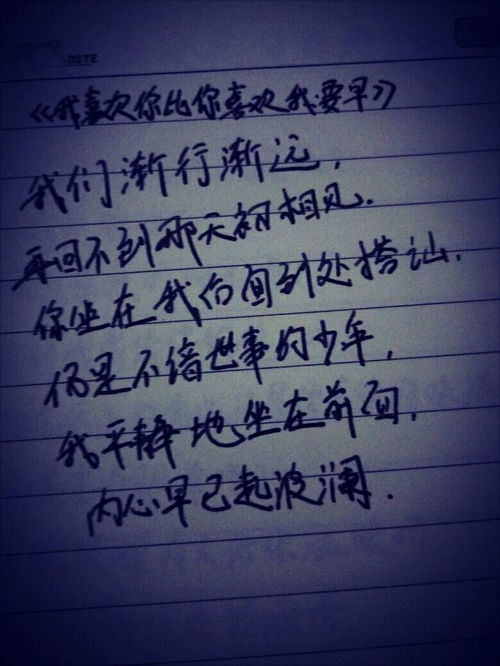 NOTE
《我喜欢你比你喜欢我要早》
我们渐行渐远,
再回不到那天初相见.
你坐在我后面到处搭讪,
仍是不谙世事的少年,
我平静地坐在前面,
内心早已起波澜.